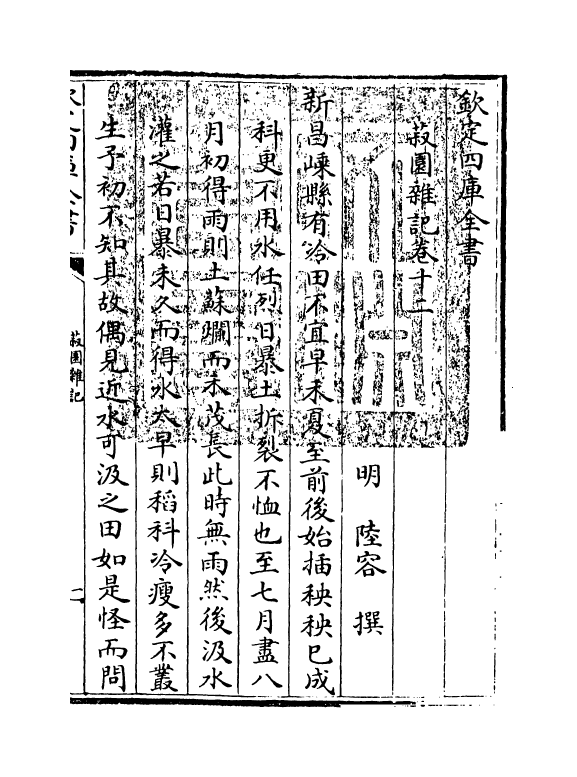 欽定四庫全書
菽園雜記卷十二
明 陸容 撰
新昌嵊縣有冷田不宜早禾夏至前後始插秧秧已成
科更不用水任烈日暴土拆裂不恤也至七月盡八
月初得雨則土蘇爛而禾茂長此時無雨然後汲水
灌之若日暴未久而得水太早則稻科冷瘦多不叢
生予初不知其故偶見近水可汲之田如是怪而問
菽園雜記